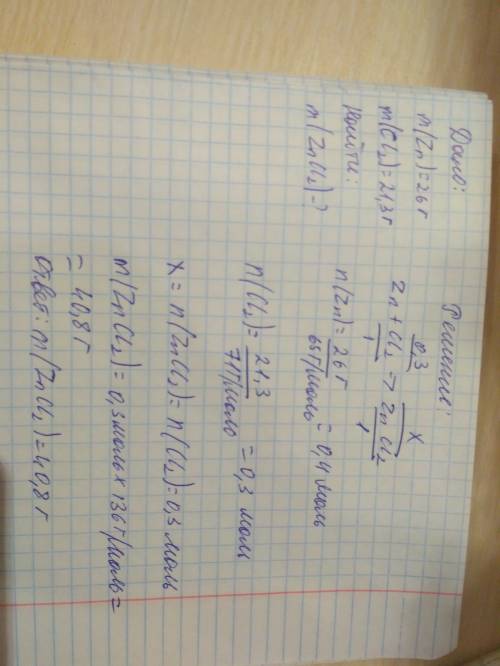 Дано:
m(Zn)=26 г
m(Cl₂)=21,3 г
Найти:
m(ZnCl₂)-?
Решение:
0,3 x
Zn + Cl₂ → ZnCl₂
1 1
n(Zn)= 26 г / 65 г/моль = 0,4 моль
n(Cl₂)= 21,3 / 71 г/моль = 0,3 моль
X = n(ZnCl₂)= n(Cl₂)=0,3 моль
m(ZnCl₂)= 0,3 моль x 136 г/моль=
= 40,8 г
Ответ: m(ZnCl₂)=40,8 г